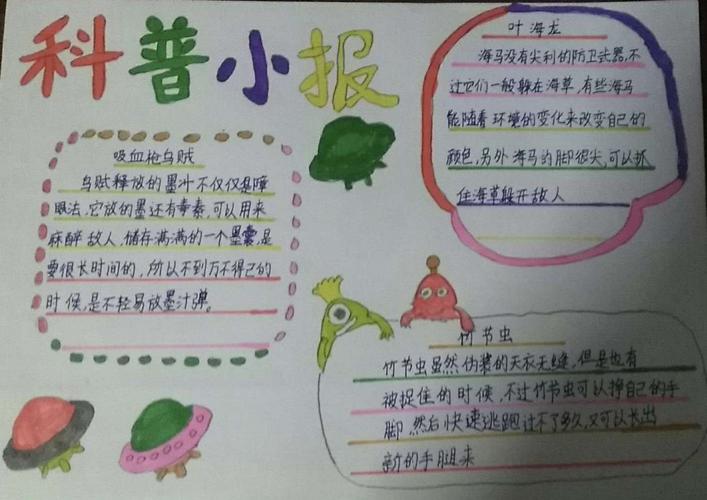 科普小报
吸血枪乌贼
乌贼释放的墨汁不仅仅是障
眼法,它放的墨还有毒素,可以用来
麻醉敌人,储存满满的一个墨囊,是
要很长时间的,所以不到万不得已的
时候,是不轻易放墨汁弹。
叶海龙
海马没有尖利的防卫武器,不
过它们一般躲在海草,有些海马
能随着环境的变化来改变自己的
颜色,另外海马的脚很尖,可以抓
住海草躲开敌人
竹节虫
竹节虫虽然伪装的天衣无缝,但是也有
被捉住的时候,不过竹节虫可以挣自己的手
脚,然后快速逃跑过不了多久,又可以长出
新的手腿来